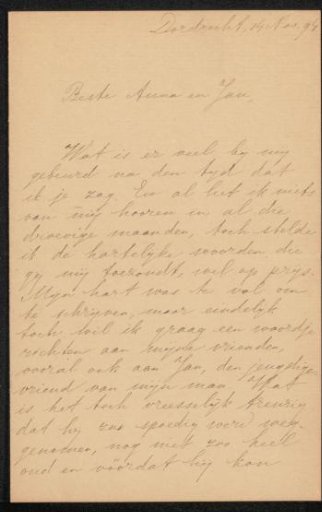 Dordrecht, 14 Nov. 94
Beste Anna en Jan,
Wat is er veel bij mij
gebeurd na den tijd dat
ik je zag. En al liet ik niets
van mij hooren in al die
droevige maanden, toch stelde
ik de hartelijke woorden die
gij mij toezondt, wel op prijs.
Mijn hart was te vol om
te schrijven, maar eindelijk
toch wil ik graag een woordje
richten aan mijne vrienden,
vooral ook aan Jan, den
vriend van mijn man. Wat
is het toch vreeselijk treurig
dat hij zoo spoedig werd weg-
genomen, nog niet zoo heel
oud en vóórdat hij kon